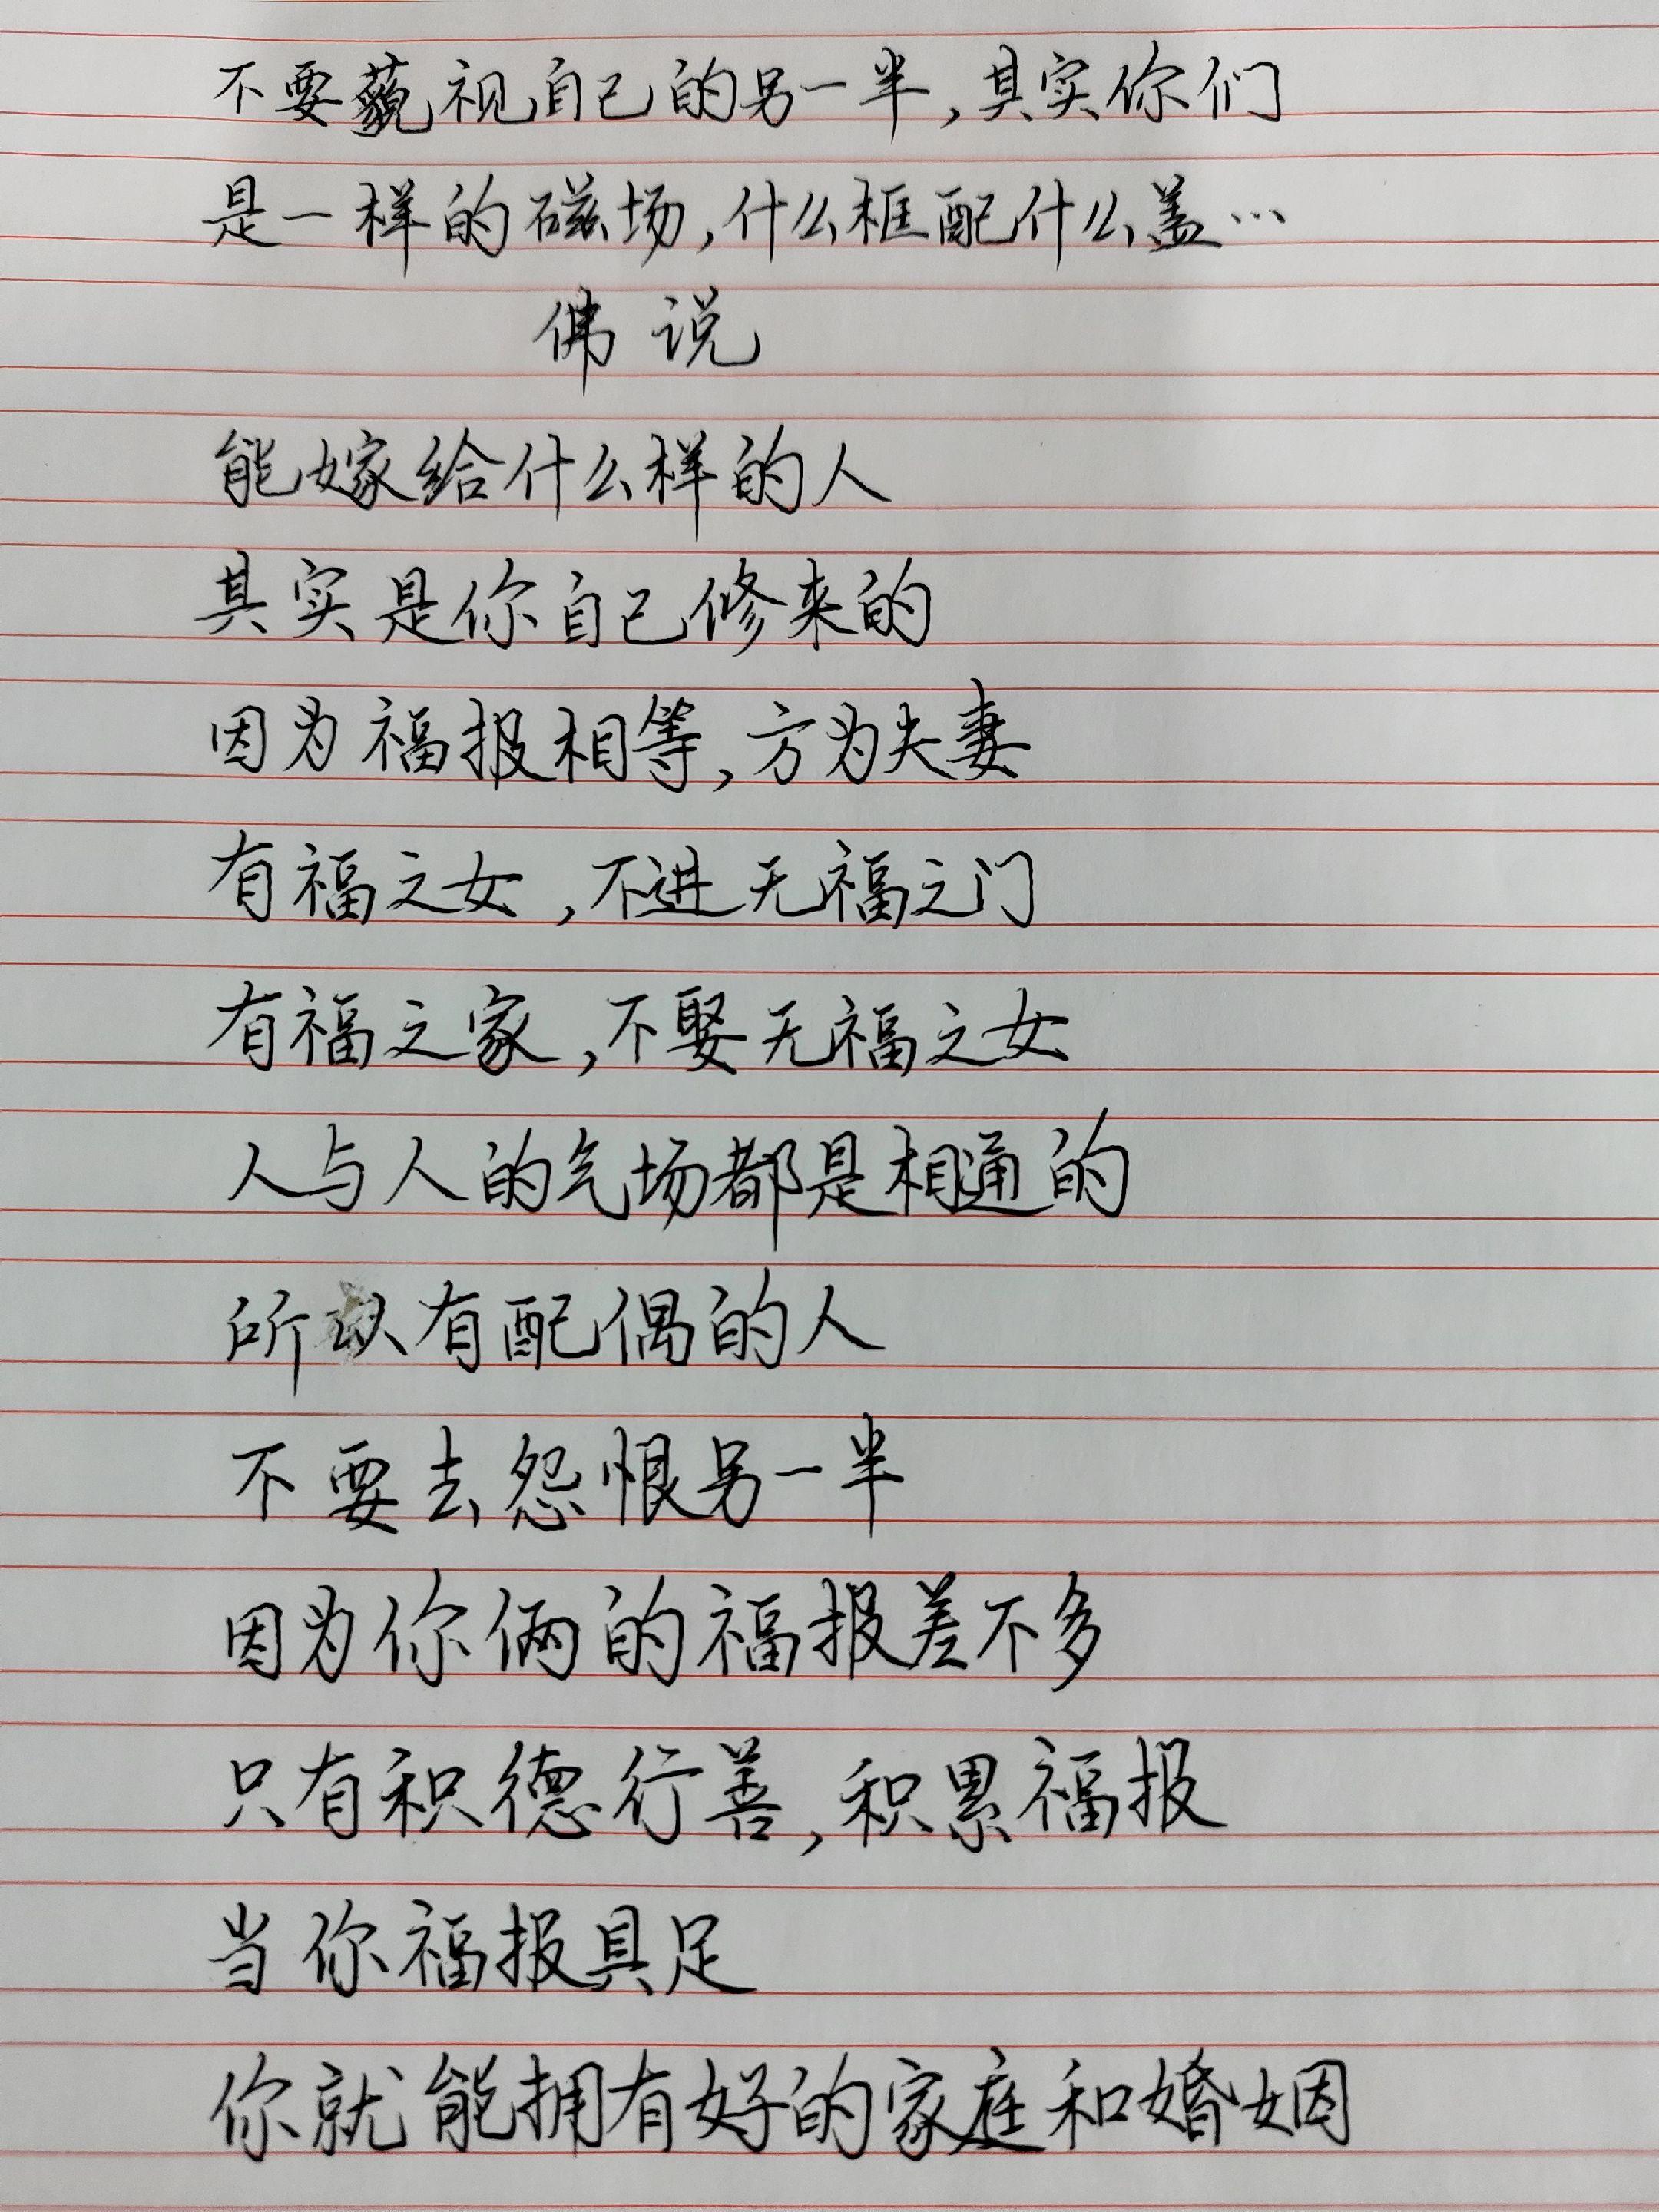 不要藐视自己的另一半,其实你们
是一样的磁场,什么框配什么盖…
佛说
能嫁给什么样的人
其实是你自己修来的
因为福报相等,方为夫妻
有福之女,不进无福之门
有福之家,不娶无福之女
人与人的气场都是相通的
所以有配偶的人
不要去怨恨另一半
因为你俩的福报差不多
只有积德行善,积累福报
当你福报具足
你就能拥有好的家庭和婚姻